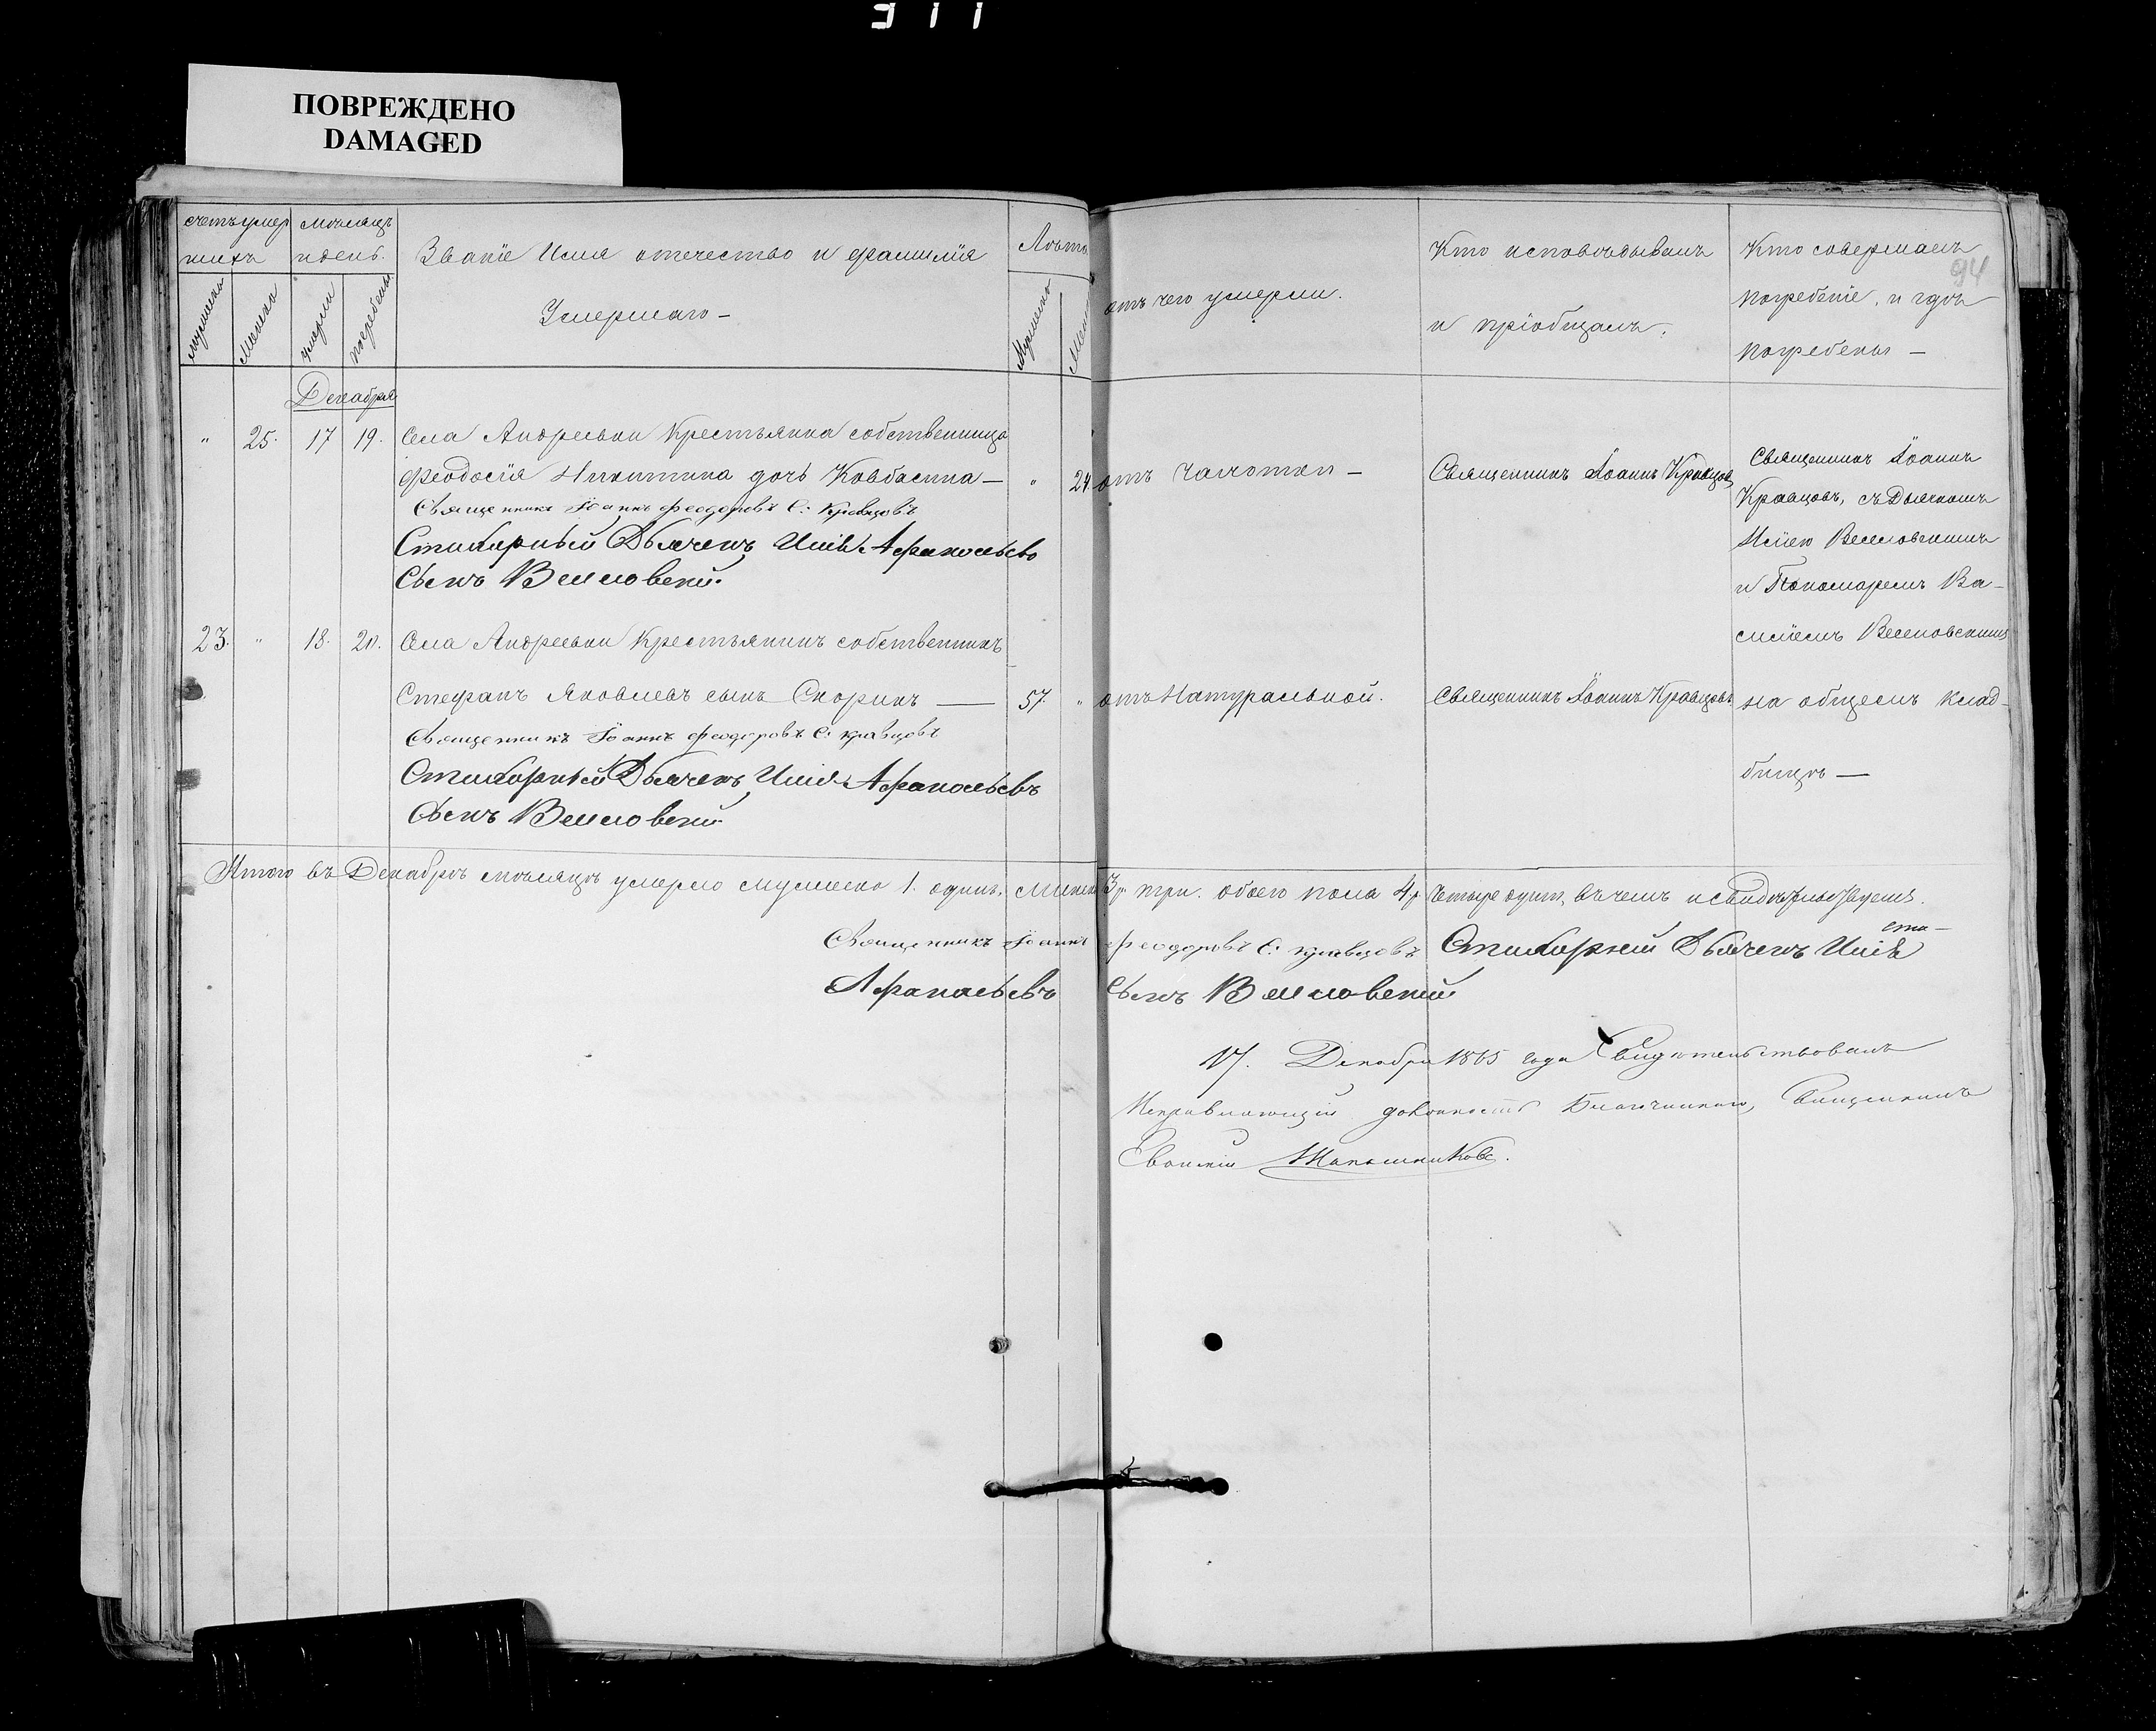 311
ПОВРЕЖДЕНО
DAMAGED
94
счетъ умер
шихъ
мѣсяцъ
и день.
Званіе Имя отечество и фамилія
Умершаго —
Лѣта
мужеска
Женска
умерли
погребены
Мужеска
Женска
отъ чего умерли.
Кто исповѣдывалъ
и пріобщалъ.
Кто совершалъ
погребеніе, и гдѣ
погребены —
Декабря
" 25. 17 19. Села Андреевки Крестьянка собственница
Феодосія Никитина дочь Ковбасина — " 24 отъ чахотки — Священникъ Іоаннъ Кравцовъ
Священникъ Іоаннъ Феодоровъ С. Кравцовъ
Стихарный Дьячекъ Илія Афанасьевъ
Сынъ Веселовскій.
Священникъ Іоаннъ
Кравцовъ, съ Дьячкомъ
Иліею Веселовскимъ
и Пономаремъ Ва-
силіемъ Веселовскимъ
на общемъ клад-
бищѣ —
23. " 18. 20. Села Андреевки Крестьянинъ собственникъ
Стефанъ Яковлевъ сынъ Скоринъ — 57. " отъ Натуральной. Священникъ Іоаннъ Кравцовъ
Священникъ Іоаннъ Феодоровъ С. Кравцовъ
Стихарный Дьячекъ Илія Афанасьевъ
Сынъ Веселовскій
Итого въ Декабрѣ мѣсяцѣ умерло мужеска 1. одинъ, Женска 3. три. обоего пола 4. Четыре души, въ чемъ и свидѣтельствуемъ.
Священникъ Іоаннъ Феодоровъ С. Кравцовъ Стихарный Дьячекъ Илія
Афанасьевъ Сынъ Веселовскій
17. Декабря 1865 года Свидѣтельствовалъ
Исправляющій должность Благочиннаго, Священникъ